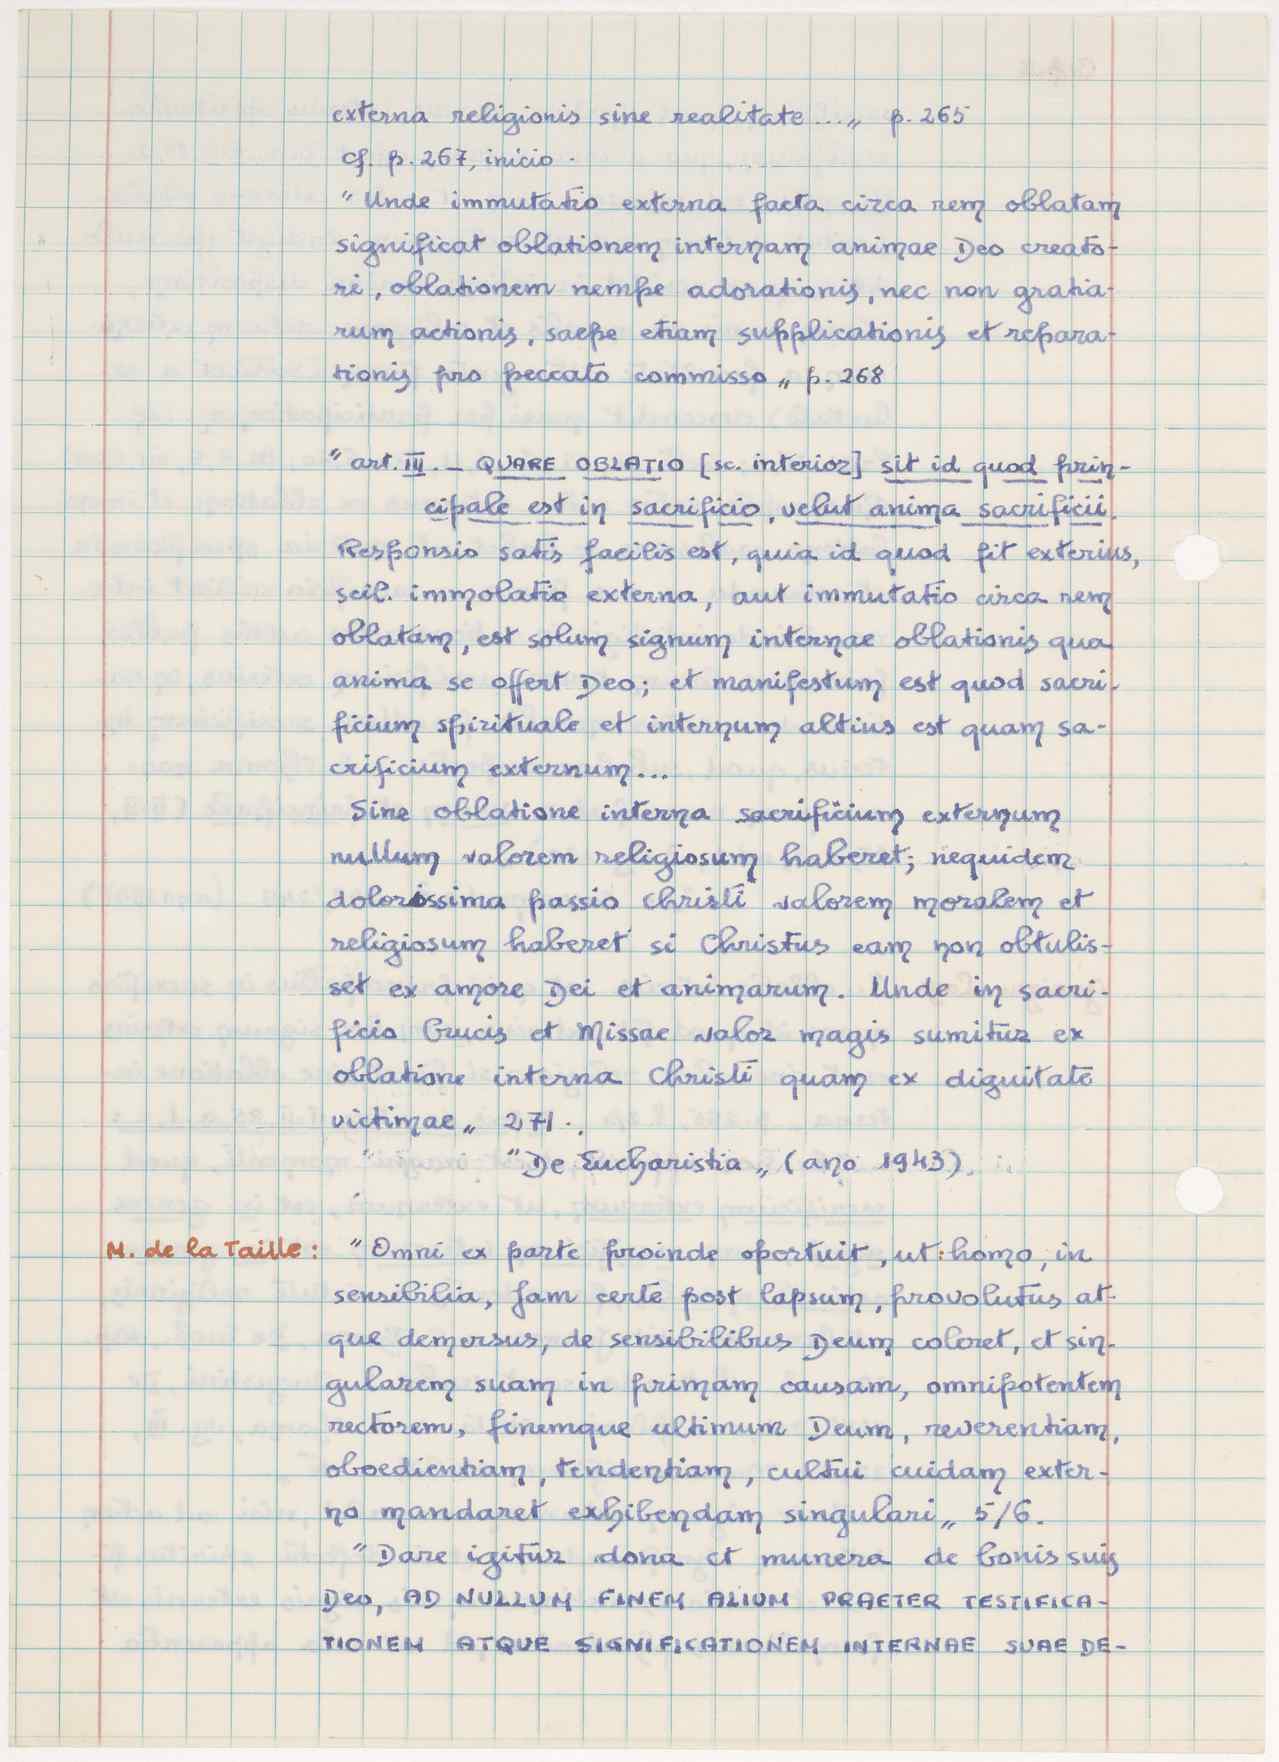 externa religionis sine realitate...„ p. 265
cf. p. 267, inicio.
"Unde immutatio externa facta circa rem oblatam
significat oblationem internam animae Deo creato-
ri, oblationem nempe adorationis, nec non gratia-
rum actionis, saepe etiam supplicationis et repara-
tionis pro peccato commisso„ p. 268
"art. III. — QUARE OBLATIO [sc. interior] sit id quod prin-
cipale est in sacrificio, velut anima sacrificii.
Responsio satis facilis est, quia id quod fit exterius,
scil. immolatio externa, aut immutatio circa rem
oblatam, est solum signum internae oblationis qua
anima se offert Deo; et manifestum est quod sacri-
ficium spirituale et internum altius est quam sa-
crificium externum...
Sine oblatione interna sacrificium externum
nullum valorem religiosum haberet; nequidem
dolorissima passio Christi valorem moralem et
religiosum haberet si Christus eam non obtulis-
set ex amore Dei et animarum. Unde in sacri-
ficio Crucis et Missae valor magis sumitur ex
oblatione interna Christi quam ex dignitate
victimae„ 271.
"De Eucharistia„ (ano 1943).
M. de la Taille: "Omni ex parte proinde oportuit, ut homo, in
sensibilia, jam certe post lapsum, provolutus at-
que demersus, de sensibilibus Deum coleret, et sin-
gularem suam in primam causam, omnipotentem
rectorem, finemque ultimum Deum, reverentiam,
oboedientiam, tendentiam, cultui cuidam exter-
no mandaret exhibendam singulari„ 5/6.
"Dare igitur dona et munera de bonis suis
Deo, AD NULLUM FINEM ALIUM PRAETER TESTIFICA-
TIONEM ATQUE SIGNIFICATIONEM INTERNAE SUAE DE-